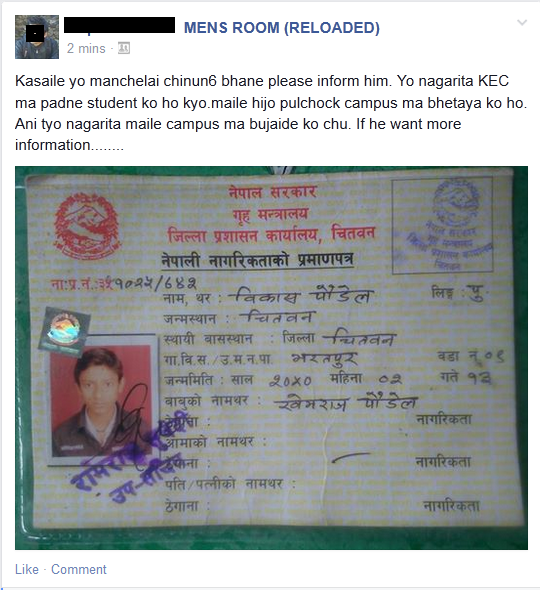 MENS ROOM (RELOADED)
2 mins ·
Kasaile yo manchelai chinun6 bhane please inform him. Yo nagarita KEC
ma padne student ko ho kyo.maile hijo pulchock campus ma bhetaya ko ho.
Ani tyo nagarita maile campus ma bujaide ko chu. If he want more
information........
नेपाल सरकार
गृह मन्त्रालय
जिल्ला प्रशासन कार्यालय, चितवन
नेपाली नागरिकताको प्रमाणपत्र
ना.प्र.नं.
नाम, थर : विकास पौडेल लिङ्ग : पु.
जन्मस्थान : चितवन
स्थायी बासस्थान : जिल्ला चितवन
गा.वि.स. / उ.म.न.पा. भरतपुर वडा नं
जन्ममिति : साल २०४० महिना ०२ गते १३
बाबुको नामथर : खेमराज पौडेल
ठेगाना : नागरिकता
आमाको नामथर :
ठेगाना : नागरिकता
पति / पत्नीको नामथर :
ठेगाना : नागरिकता
Like · Comment